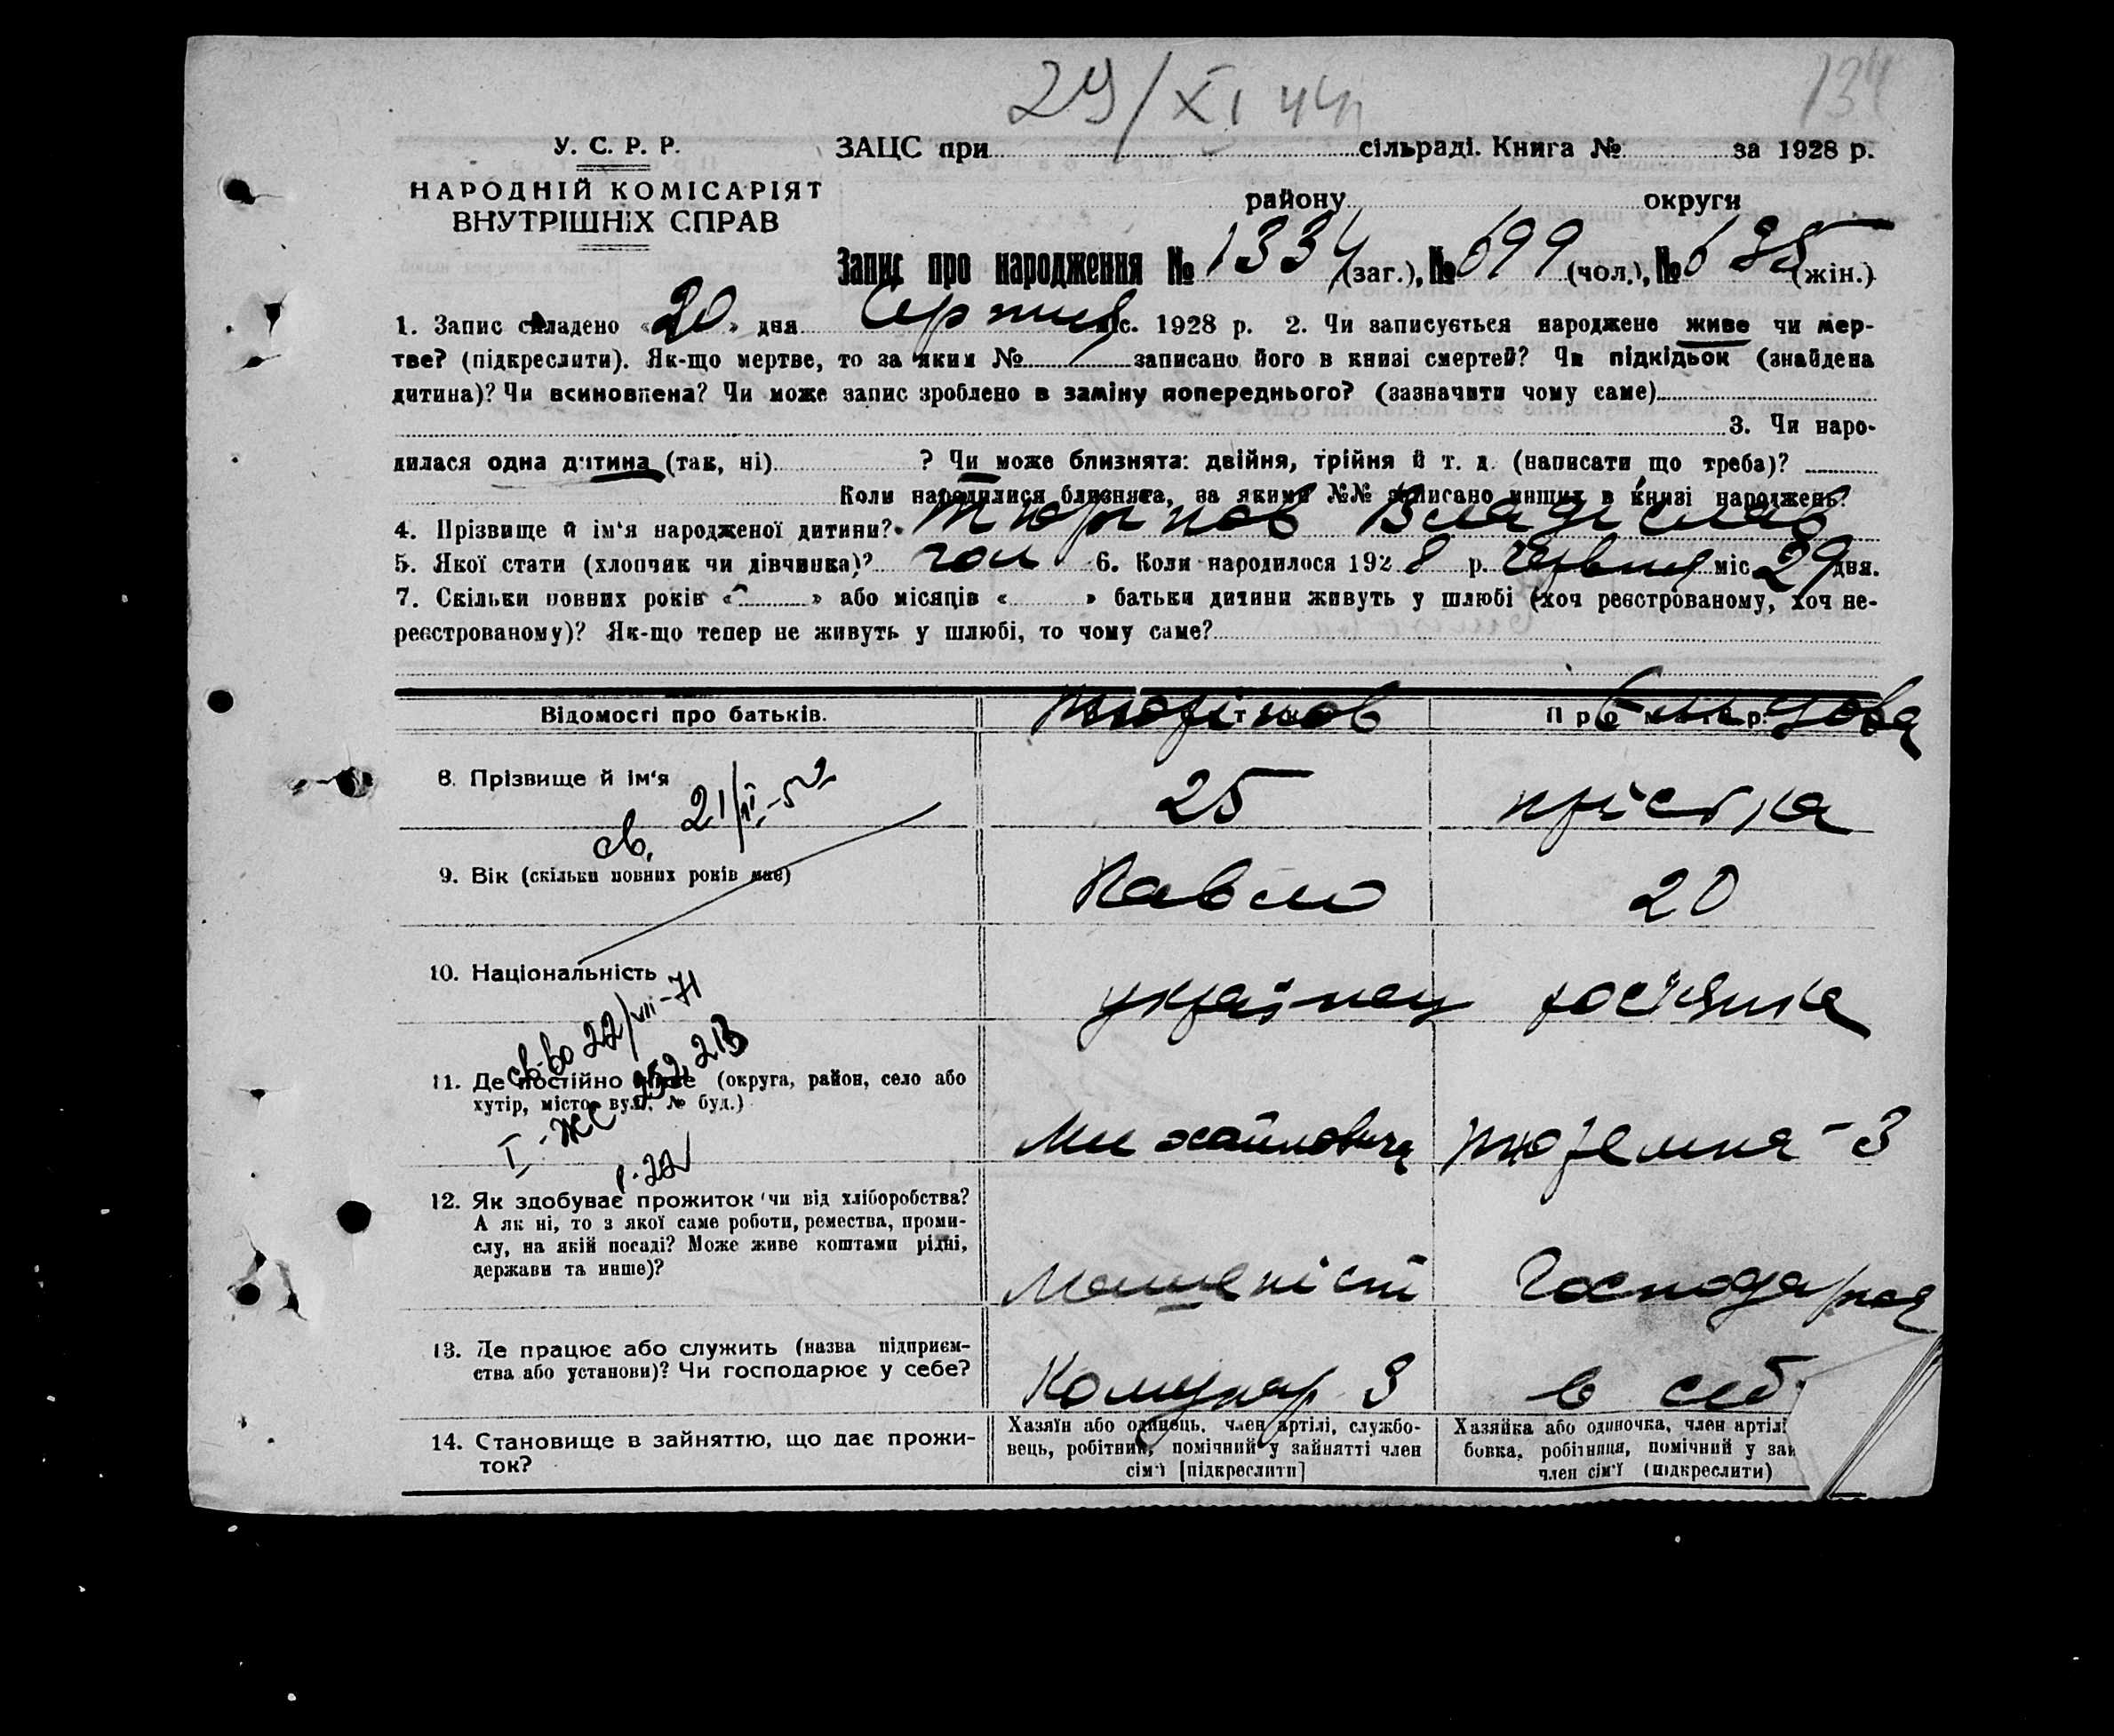 29/XI 44
134
У. С. Р. Р.
НАРОДНІЙ КОМІСАРІЯТ
ВНУТРІШНІХ СПРАВ
ЗАЦС при сільраді. Книга № за 1928 р.
району округи
Запис про народження № 1334 (заг.), № 699 (чол.), № 635 (жін.)
1. Запис складено «20» дня Серпня міс. 1928 р. 2. Чи записується народжене живе чи мер-
тве? (підкреслити). Як-що мертве, то за яким № записано його в книзі смертей? Чи підкідьок (знайдена
дитина)? Чи всиновлена? Чи може запис зроблено в заміну попереднього? (зазначити чому саме)
3. Чи наро-
дилася одна дитина (так, ні) ? Чи може близнята: двійня, трійня й т. д. (написати що треба)?
Коли народилися близнята, за якими №№ записано инших в книзі народжень?
4. Прізвище й ім'я народженої дитини? Владіслав
5. Якої стати (хлопчик чи дівчинка)? чол 6. Коли народилося 1928 р. Червня міс 29 дня.
7. Скільки повних років « » або місяців « » батьки дитини живуть у шлюбі (хоч реєстрованому, хоч не-
реєстрованому)? Як-що тепер не живуть у шлюбі, то чому саме?
Відомості про батьків. Про матір:
8. Прізвище й ім'я 25
св. 21/
9. Вік (скільки повних років має) Павло 20
10. Національність українец росіянка
св-во 22/VII-71
11. Де постійно живе (округа, район, село або
хутір, місто, вул., № буд.) Михайловича Тюремна - 3
I-ЖС
12. Як здобуває прожиток чи від хліборобства?
А як ні, то з якої саме роботи, ремества, проми-
слу, на якій посаді? Може живе коштами рідні,
держави та инше)? Машеніст Господарная
13. Де працює або служить (назва підприєм-
ства або установи)? Чи господарює у себе? Комунар 3 в себ
14. Становище в зайняттю, що дає прожи-
ток?
Хазяїн або одинець, член артілі, службо-
вець, робітник, помічний у зайнятті член
сім'ї [підкреслити]
Хазяйка або одиночка, член артілі
бовка, робітниця, помічний у зай
член сім'ї (підкреслити)